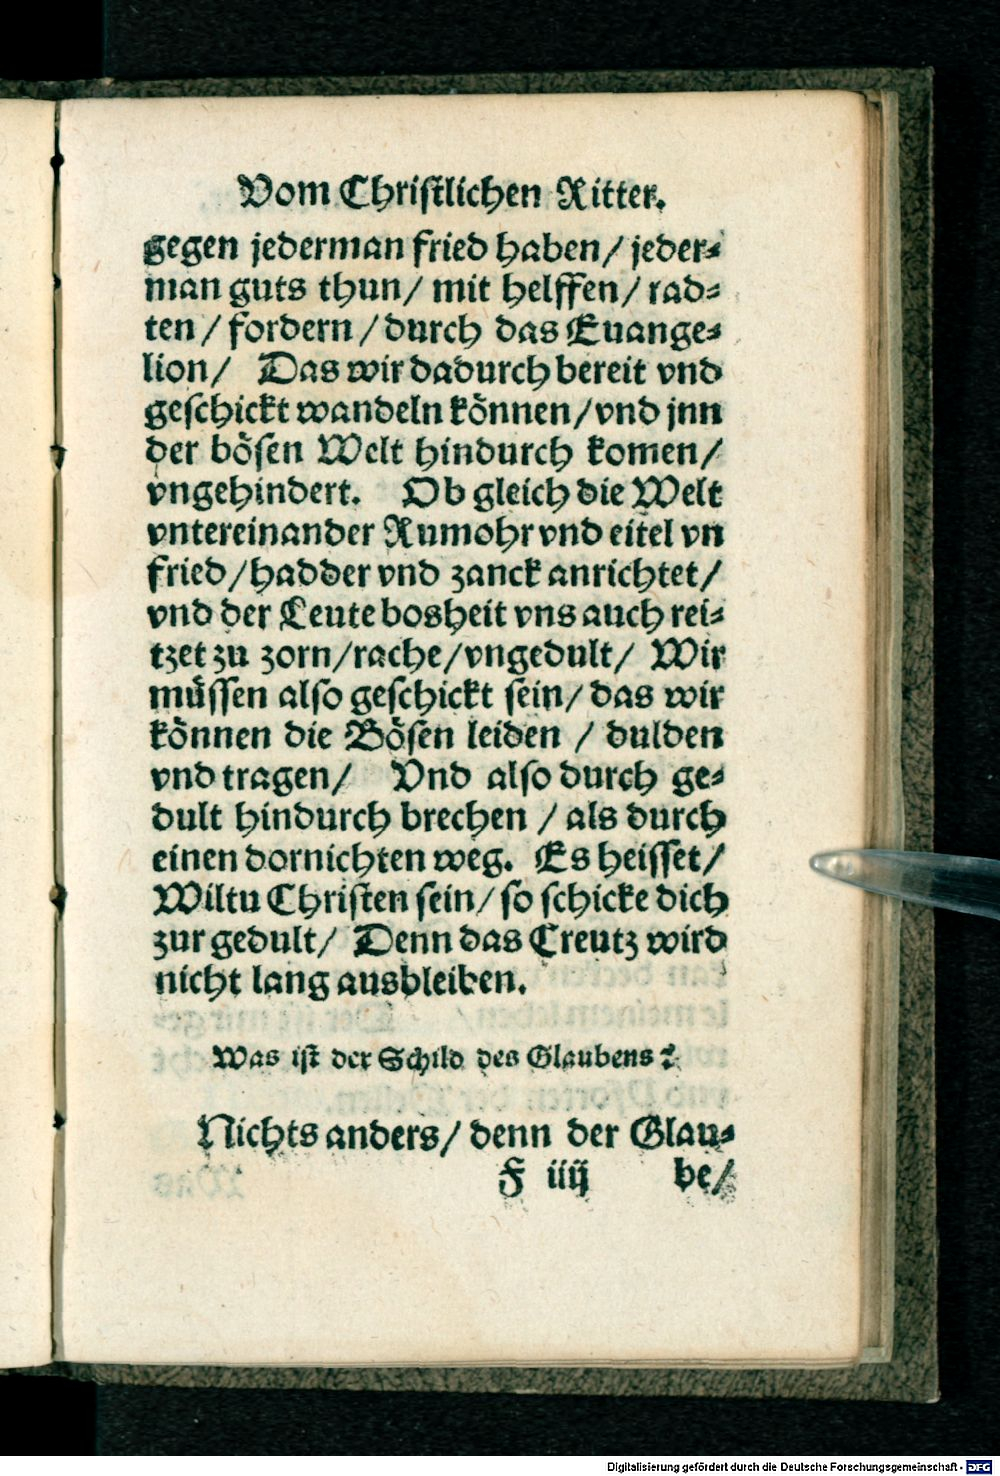 Vom Christlichen Ritter.
gegen jederman fried haben/ jeder⸗
man guts thun/ mit helffen/ rad⸗
ten/ fordern/ durch das Euange⸗
lion/ Das wir dadurch bereit vnd
geschickt wandeln können/ vnd jnn
der bösen Welt hindurch komen/
vngehindert. Ob gleich die Welt
vntereinander Rumohr vnd eitel vn
fried/ hadder vnd zanck anrichtet/
vnd der Leute bosheit vns auch rei⸗
tzet zu zorn/ rache/ vngedult/ Wir
müssen also geschickt sein/ das wir
können die Bösen leiden / dulden
vnd tragen/ Vnd also durch ge⸗
dult hindurch brechen / als durch
einen dornichten weg. Es heisset/
Wiltu Christen sein/ so schicke dich
zur gedult/ Denn das Creutz wird
nicht lang ausbleiben.
Was ist der Schild des Glaubens?
Nichts anders/ denn der Glau⸗
F iiij be/
Digitalisierung gefördert durch die Deutsche Forschungsgemeinschaft - DFG